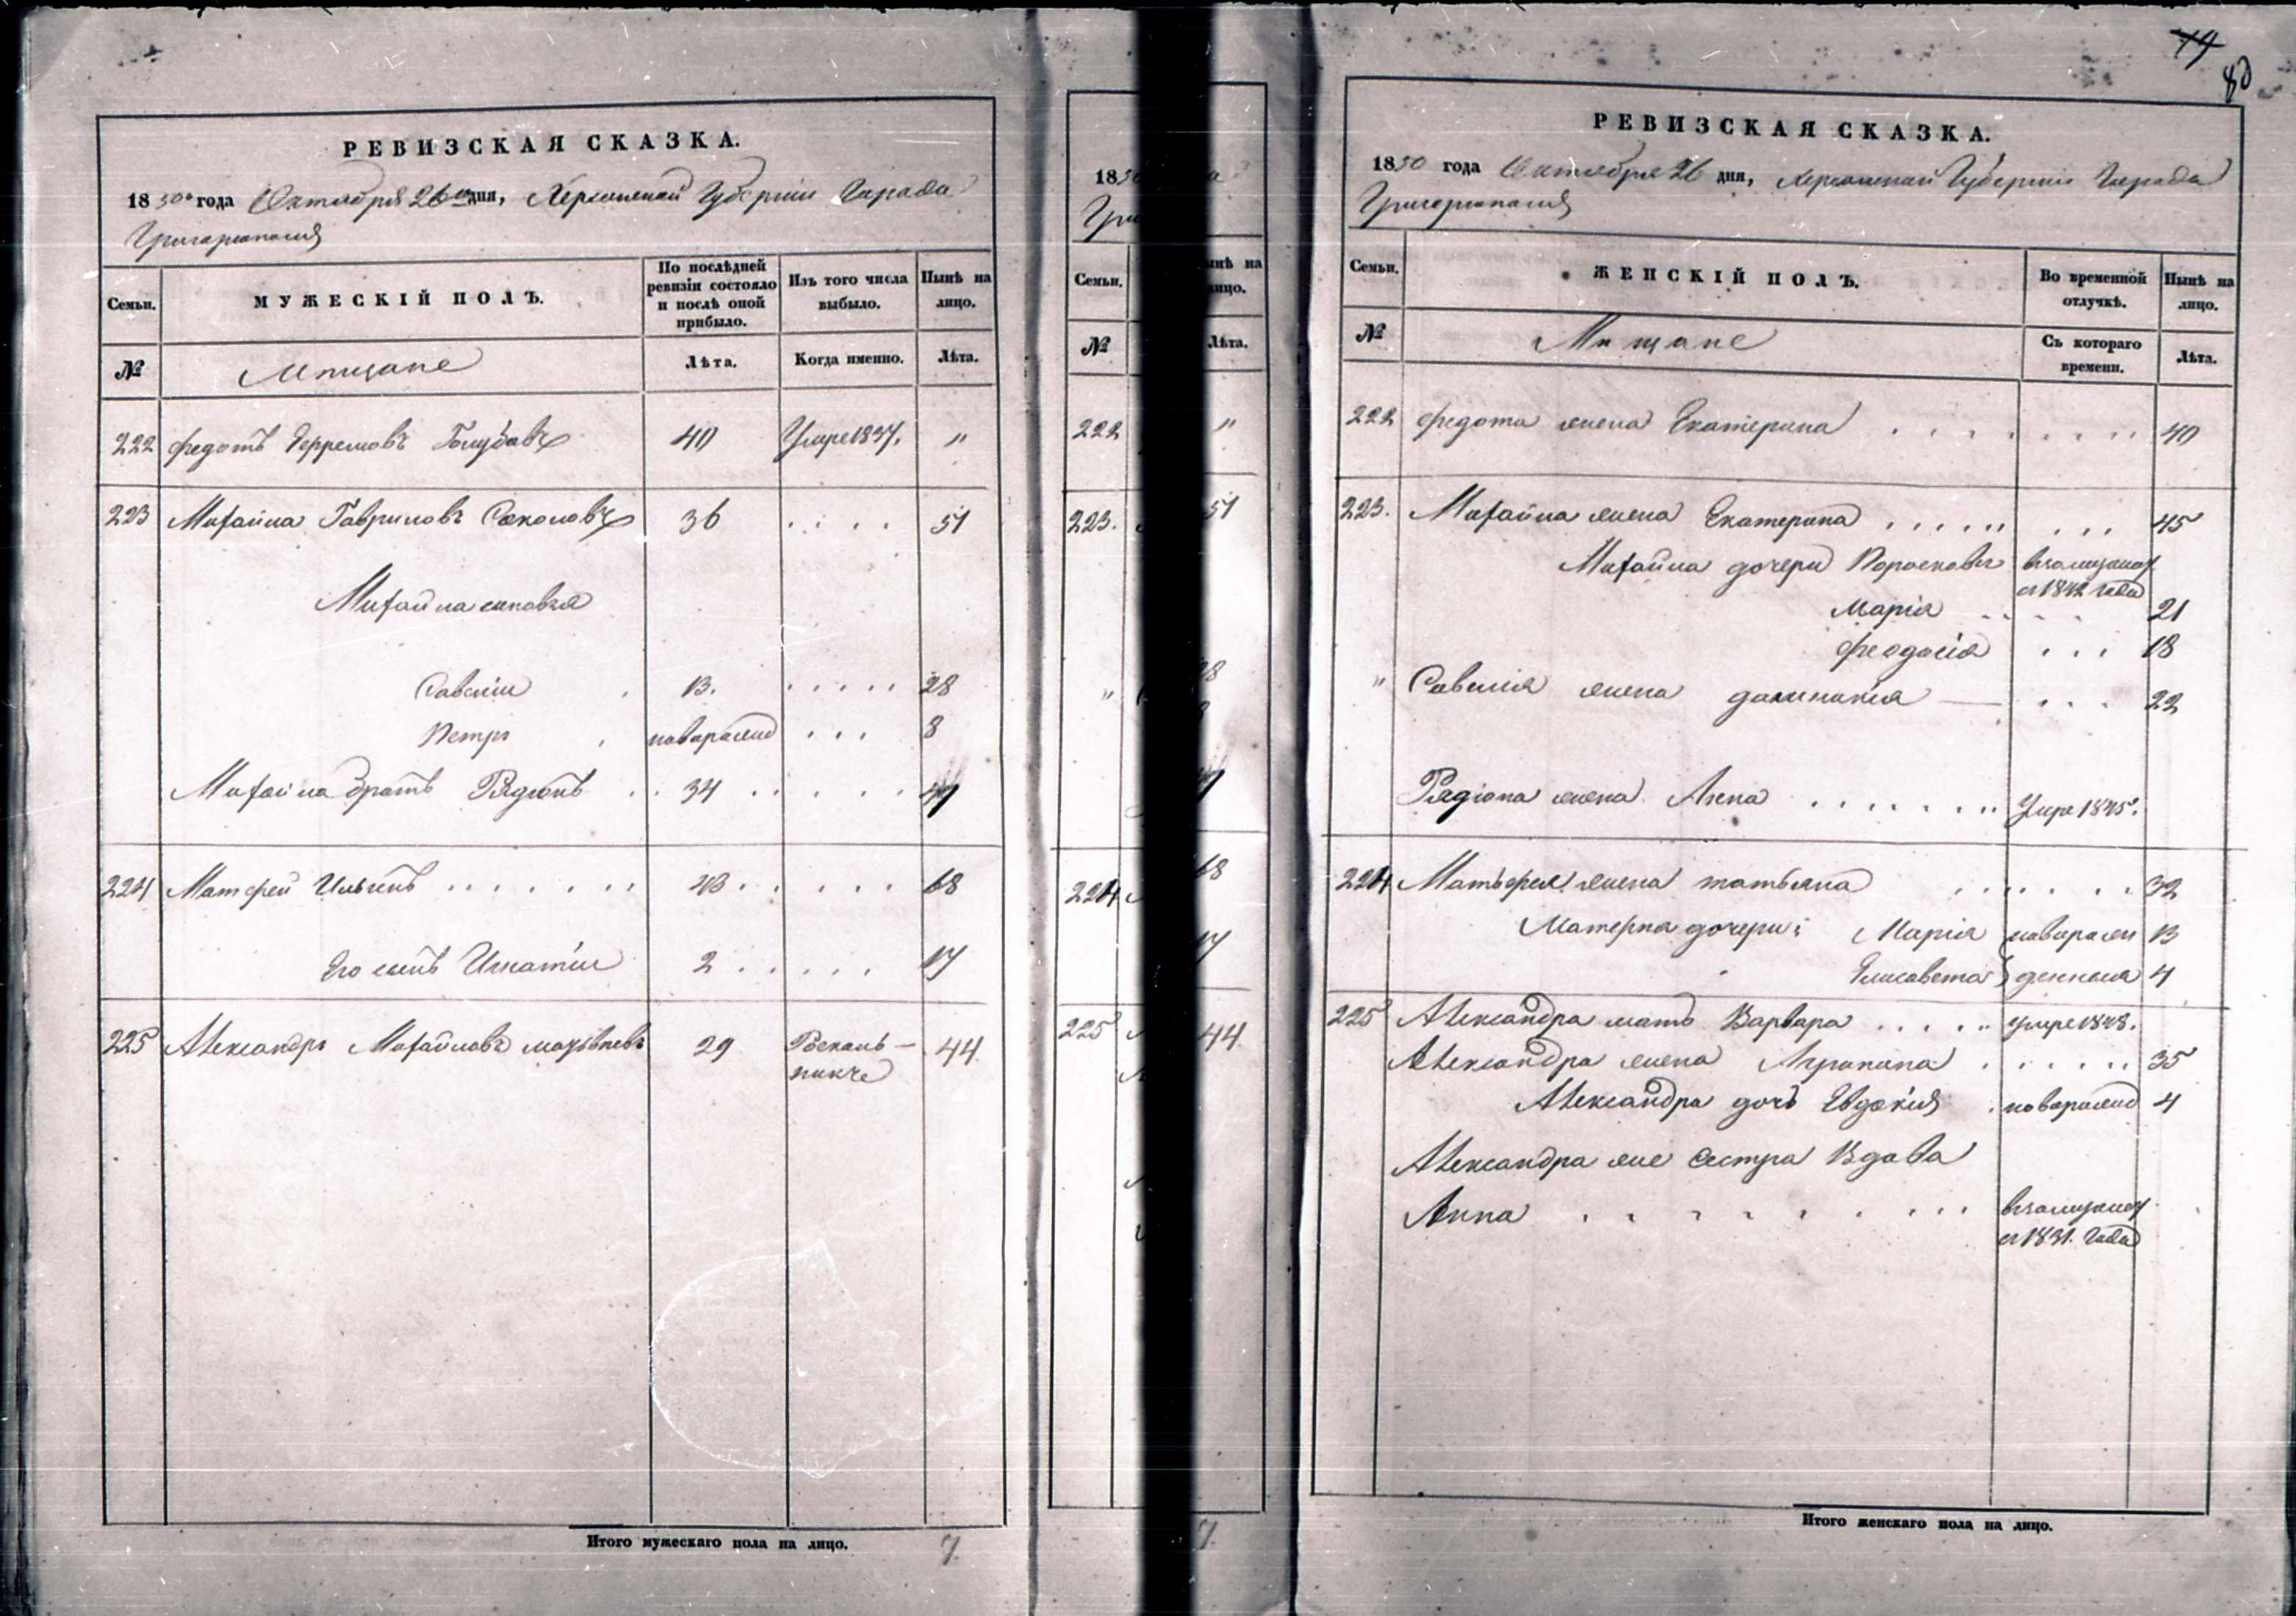 РЕВИЗСКАЯ СКАЗКА.
1850 года Октября 26 дня, Херсонской Губернии Города
Григориополя
Семьи.
МУЖЕСКІЙ ПОЛЪ.
По послѣдней ревизіи состояло и послѣ оной прибыло.
Изъ того числа выбыло.
Нынѣ на лицо.
№
Мещане
Лѣта.
Когда именно.
Лѣта.
222 Федотъ Ефремовъ Голубовъ 40 Умре 1837. "
223 Михайла Гавриловъ Соколовъ 36 . . . . 51
Михайла сыновья
Савелій 13. . . . . . 28
Петръ . . . 8
Михайла братъ Родіонъ . . 34 . . . . .
224 Матфей Ильинъ . . . . . . . . . . . 68
Его сынъ Игнатій 2 . . . . . 17
225 Александръ Михайловъ 29 44
Итого мужескаго пола на лицо. 7.
18
Семьи.
№
222
223.
"
224
225
Нынѣ на лицо.
Лѣта.
"
51
28
8
68
17
44
7.
79
80
РЕВИЗСКАЯ СКАЗКА.
1850 года Октября 26 дня, Херсонской Губерніи Города
Григориополя
Семьи.
ЖЕНСКІЙ ПОЛЪ.
Во временной отлучкѣ.
Нынѣ на лицо.
№
Мещане
Съ котораго времени.
Лѣта.
222 Федота жена Екатерина . . . . . . . . 40
223. Михайла жена Екатерина . . . . . . . . . 45
Михайла дочери
съ 1842 года
Марія . . . . 21
Феодосія . . . 18
" Савелія жена . . . 22
Родіона жена Анна . . . . . . . Умре 1845.
224 Матьфея жена татьяна . . . . . . 32
дочери: Марія 13
Елисавета 4
225 Александра мать Варвара . . . . . умре 1848.
Александра жена . . . . . . 35
Александра дочь Евдокія 4
Александра же сестра Вдова
Анна . . . . . . . . . .
съ 1831. года
Итого женскаго пола на лицо.